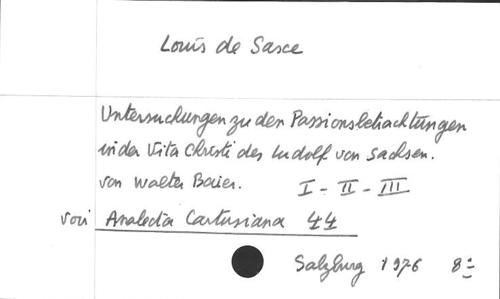 Louis de Saxe
Untersuchungen zu den Passionsbetrachtungen
in der Vita Christi des Ludolf von Sachsen.
von Walter Baier. I - II - III
voir Analecta Cartusiana 44
Salzburg 1976 8°